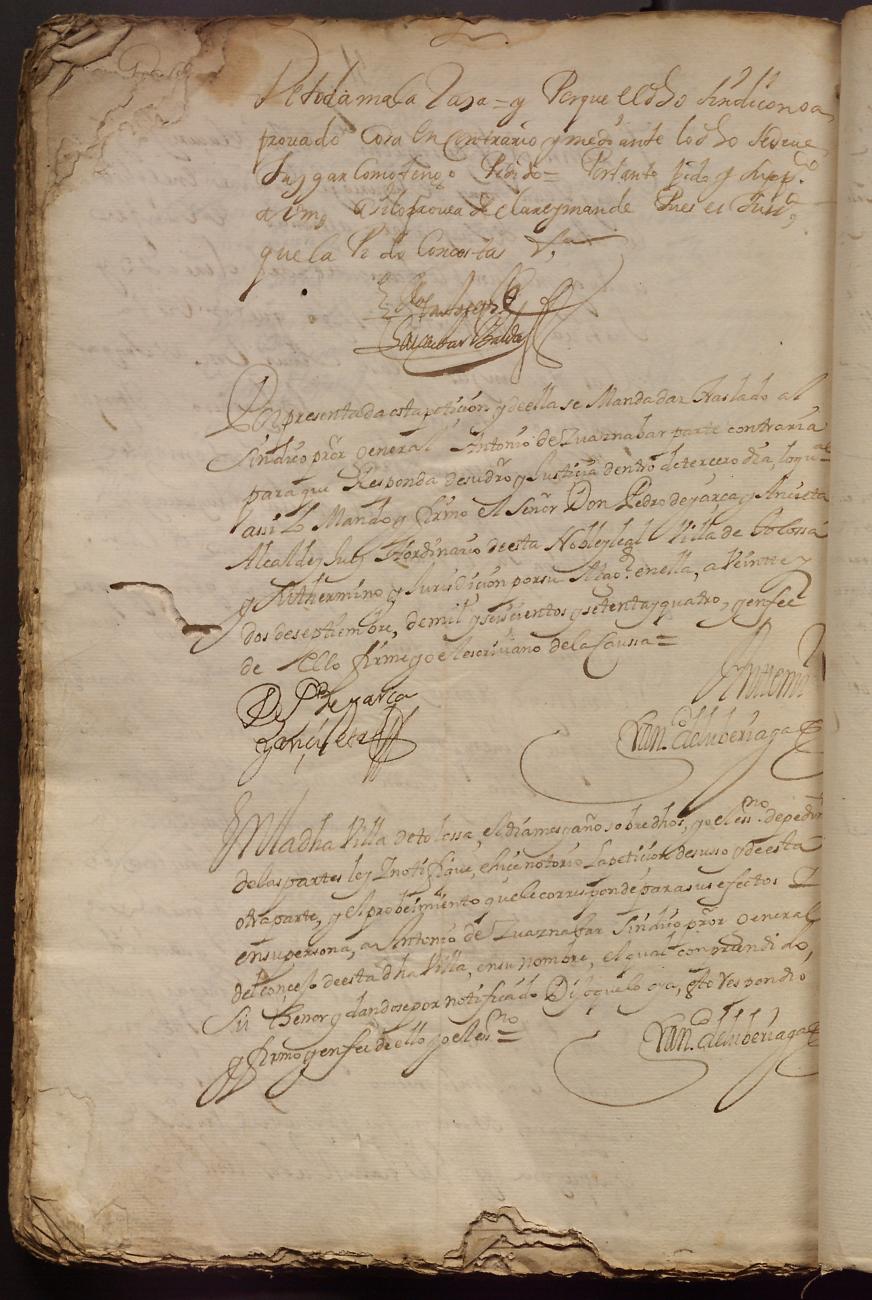 De toda mala Raza = y Porque el dho sindico no a
provado Cosa En Contrario y mediante lo dho se deve
Juzgar Como tengo Pedido = Por tanto pido y supp.co
a Vm asi lo provea declare y mande Pues es Justi.a
que la Pido Con costas V.a
Por presentada esta peticion y de ella se Manda dar traslado al
sindico pror General Antonio de Zuaznabar parte contraria
para que Responda de su dro y Justicia dentro de tercero dia, lo qual
assi lo Mando y firmo el Señor Don Pedro de yarca y
Alcalde y Juez Hordinario de esta Noble y leal Villa de tolossa
y su thermino y Jurisdicion por su Magd. en ella, a Veintte y
dos de septtiembre, de mil y seiscientos y setenta y quatro, y en fee
de Ello firme yo el escrivano de la Caussa =
Antemi
Dn Po de yarca
En la dha Villa de tolossa, el dia mes y año sobre dhos, yo el essno de pedimto
de las partes ley Inotifique, e hice notorio la peticion de susso y de esta
otra parte, y el probeimiento que le corresponde para sus efectos
en su persona, a Antonio de Zuaznabar Sindico pror General
del conçejo de esta dha Villa, en su nombre, el qual conprendido,
su thenor y dandose por notificado Dijo que lo oya, esto Respondio
y firmo y en fee de ello yo el esno =